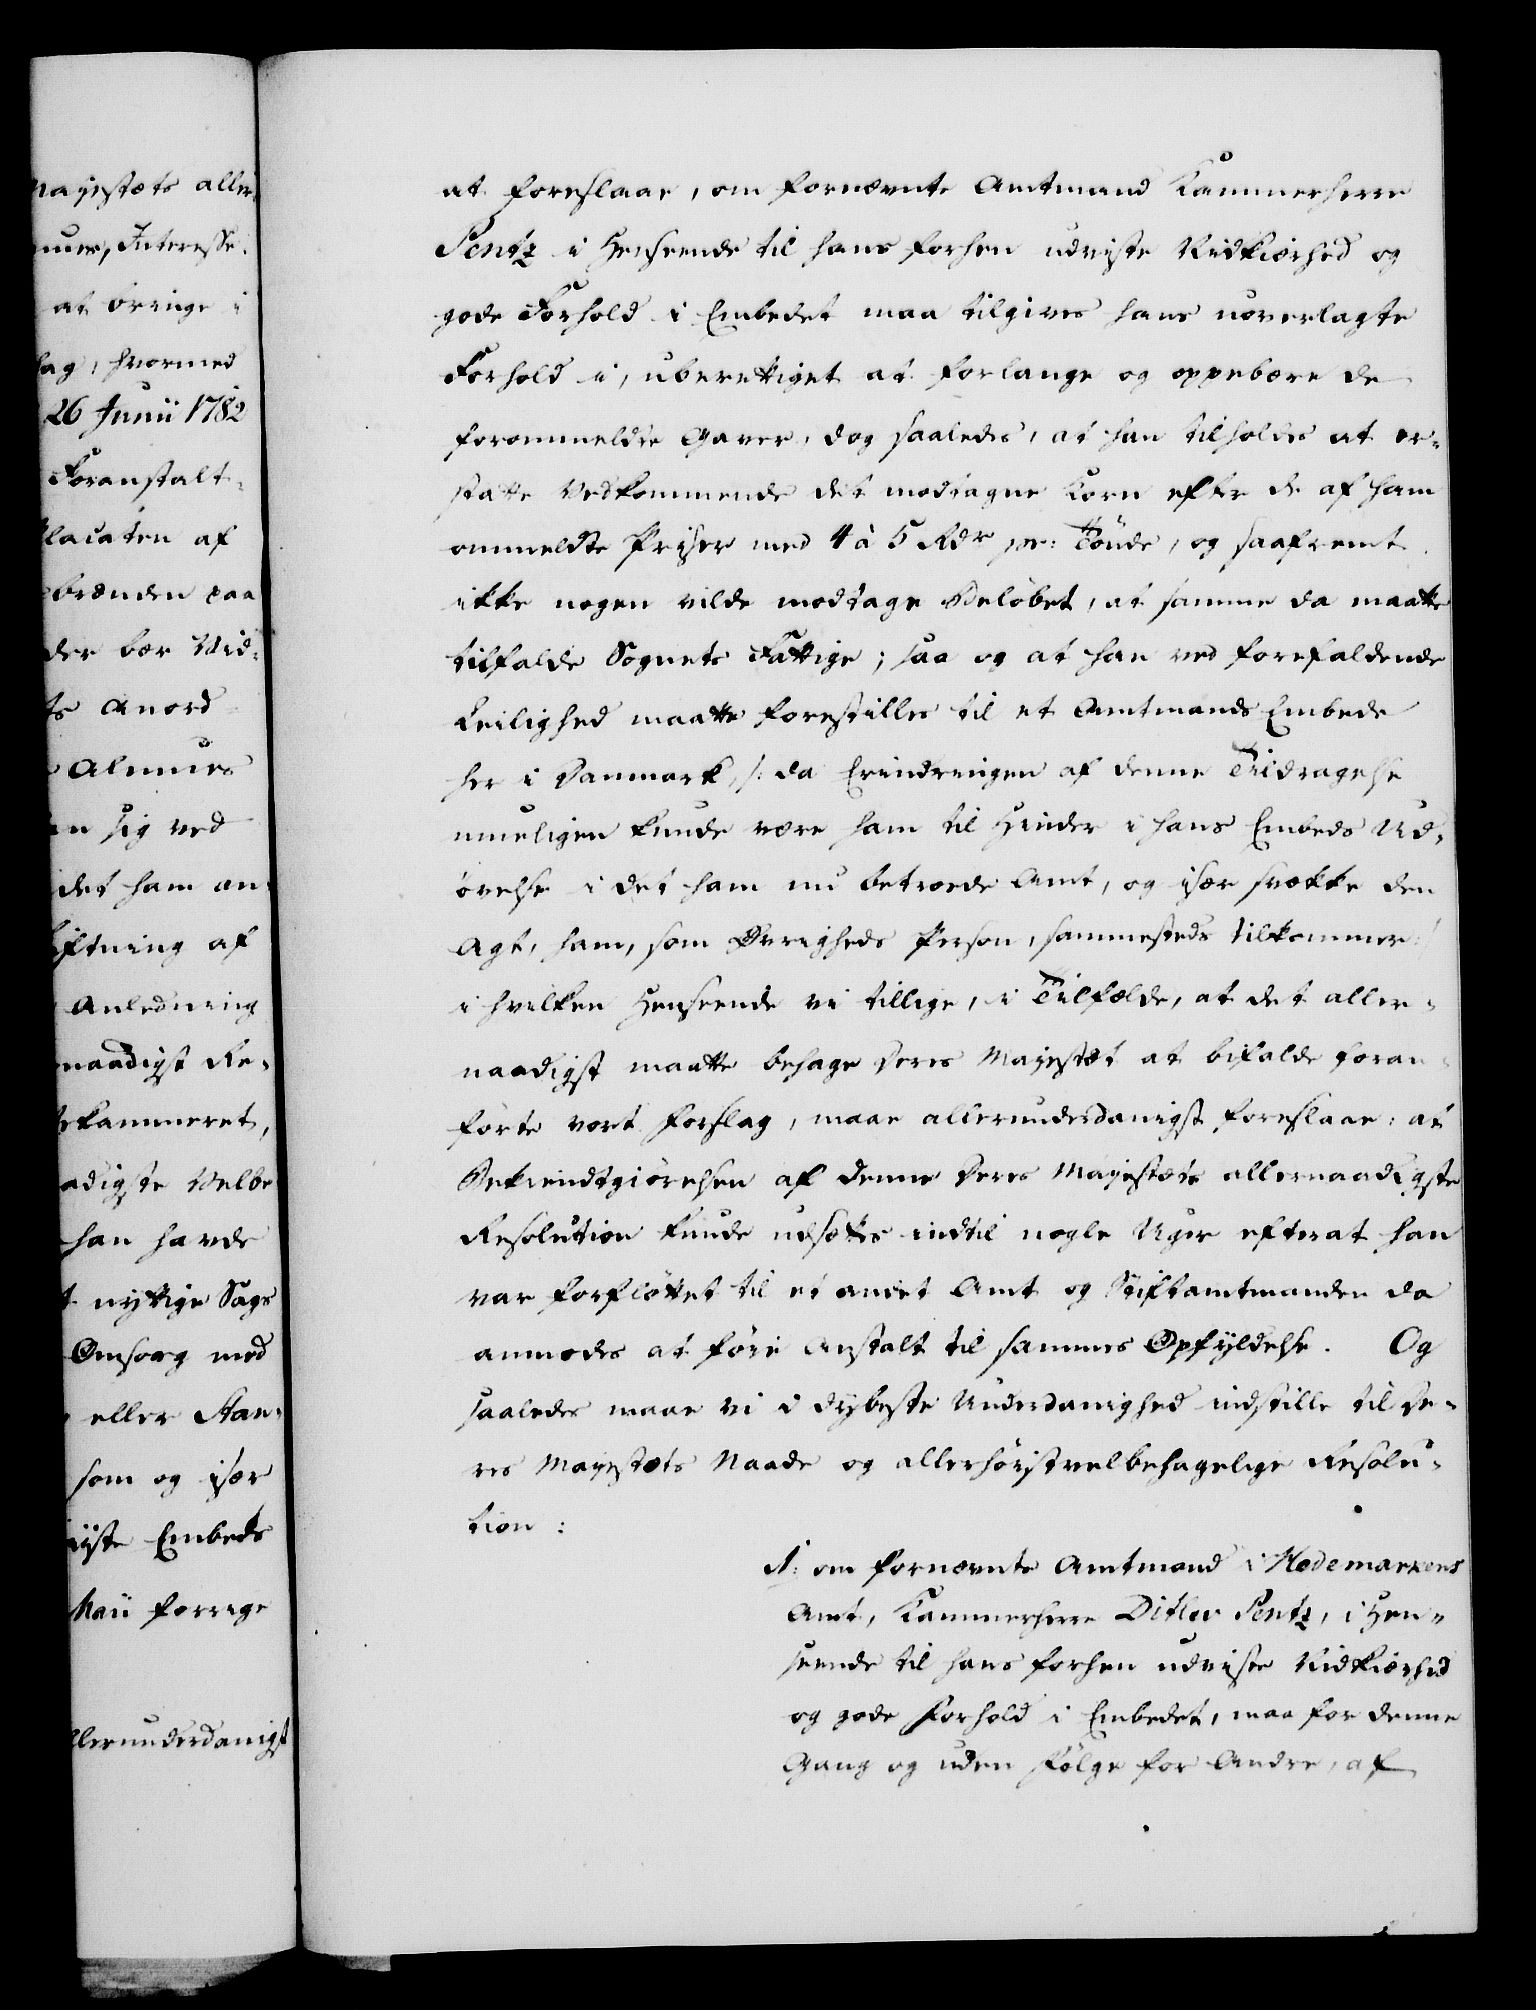 Mayestæts aller
muer, Interesse.
at bringe i
hvormed
26 Junii 1782
Foranstalt-
Placaten af
brænden paa
der bær Vid-
ts Anord-
Almues
sig ved
det ham an-
ftning af
Anledning
naadigst Re-
tekammeret,
adigste Velbe
han havde
nyttige Sags
Omsorg med
eller Stan-
som og især
iste Embeds
Maii forrige
allerunderdanigst
at foreslaae, om fornævnte Amtmand Kammerherre
Pentz i Henseende til hans forhen udviste Nidkiærhed og
gode Forhold i Embedet maa tilgives hans uoverlagte
Forhold i, uberettiget at forlange og oppebære de
forommeldte Gaver, dog saaledes, at han tilholdes at er-
statte Vedkommende det modtagne Korn efter de af ham
ommeldte Priser med 4 à 5 Rdr pr: Tönde, og saafremt
ikke nogen vilde modtage Beløbet, at samme da maatte
tilfalde Sognets Fattige; saa og at han ved forefaldende
Leilighed maatte forestilles til et Amtmands Embede
her i Danmark, /: da Erindringen af denne Tildragelse
mueligen kunde være ham til Hinder i hans Embeds Ud-
övelse i det ham nu betroede Amt, og især svække den
Agt, ham, som Øvrigheds Person, sammesteds tilkommer :/
i hvilken Henseende vi tillige, i Tilfælde, at det aller-
naadigst maatte behage Deres Mayestæt at bifalde foran-
förte vort Forslag, maae allerunderdanigst foreslaae: at
Bekiendtgiörelsen af denne Deres Mayestæts allernaadigste
Resolution kunde udsættes indtil nogle Uger efterat han
var forflöttet til et andet Amt og Stiftamtmanden da
anmodes at föie Anstalt til sammes Opfyldelse. Og
saaledes maae vi i dybeste Underdanighed indstille til De-
res Mayestæts Naade og allerhöistvelbehagelige Resolu-
tion:
1: om fornævnte Amtmand i Hedemarkens
Amt, Kammerherre Ditlev Pentz, i Hen-
seende til hans forhen udviste Nidkiærhed
og gode Forhold i Embedet, maa for denne
Gang og uden Fölge for Andre, af